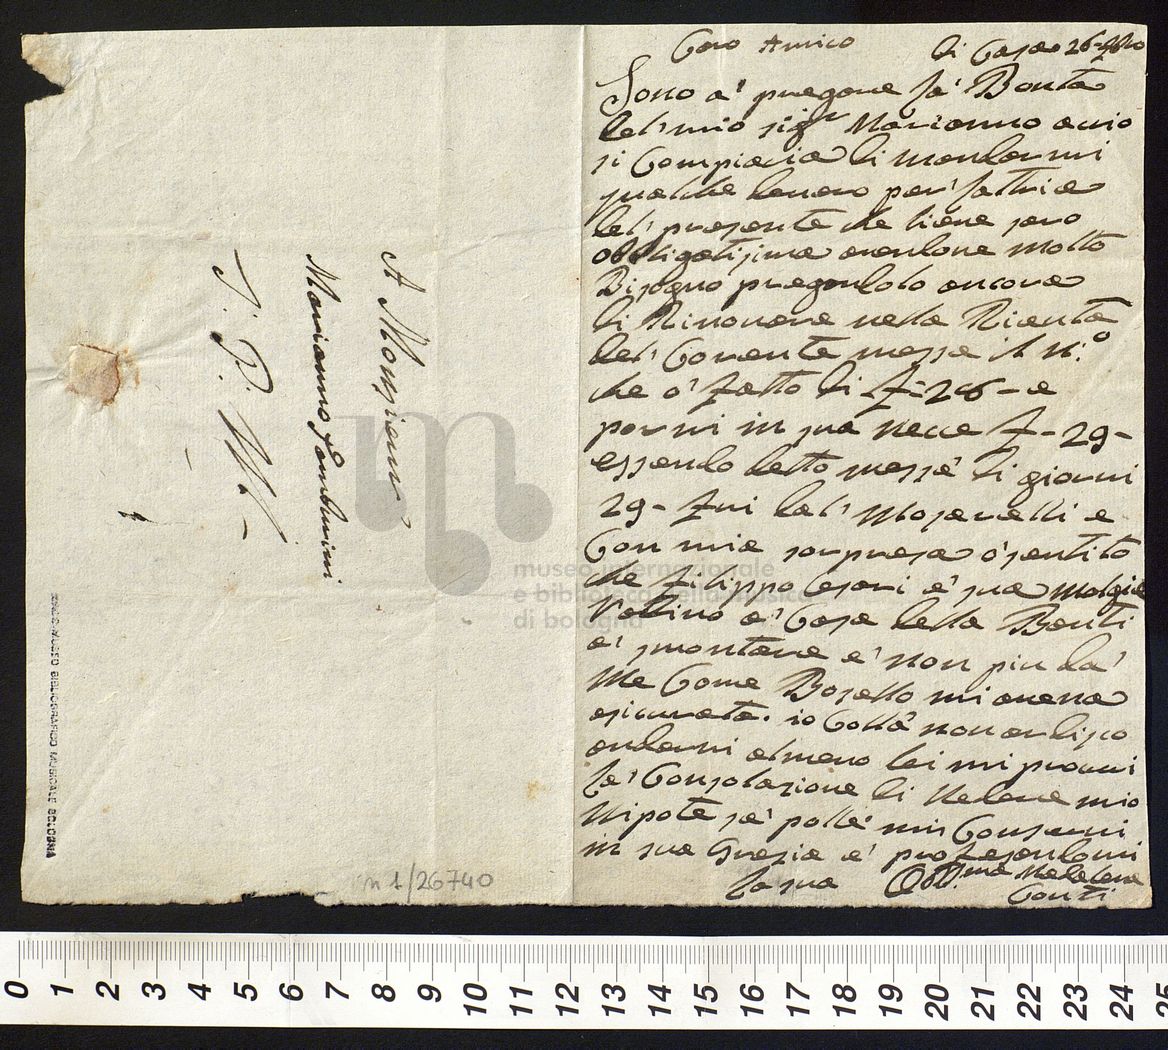 Caro Amico
di Casa 26
Sono a' pregare la' Bontà
del' mio sigr Marianno acio
si Compiacia di mandarmi
qualche denaro per' latrice
del' presente che liene saro
obbligatisima avendone molto
Bisogno pregandolo ancora
di Rinovare nella
del' Corente messe il N:o
che o' fatto di £ 26 - e
pormi in sua vece £ - 29 -
essendo detto messe' di giorni
29 - fui dal' Mosarelli e
Con mia sorpresa o' sentito
che Filippo e' sua Molgie
a' Casa della Bonti
a' smontare e' non piu da'
Me Come Bosello mi aveva
asicurata. io Collà non ardisco
andarvi almeno lei mi procuri
la' Consolazione di Vedere mio
Nipote se' polle' mi Conservi
in sua Grazia e' protesandomi
la sua Obb.ma Madalena
Conti
A Monsieur
Marianno Gamberini
S. P. M. -
CIVICO MUSEO BIBLIOGRAFICO MUSICALE BOLOGNA
n 1/26740
museo internazionale
e biblioteca della musica
di bologna
0 1 2 3 4 5 6 7 8 9 10 11 12 13 14 15 16 17 18 19 20 21 22 23 24 25